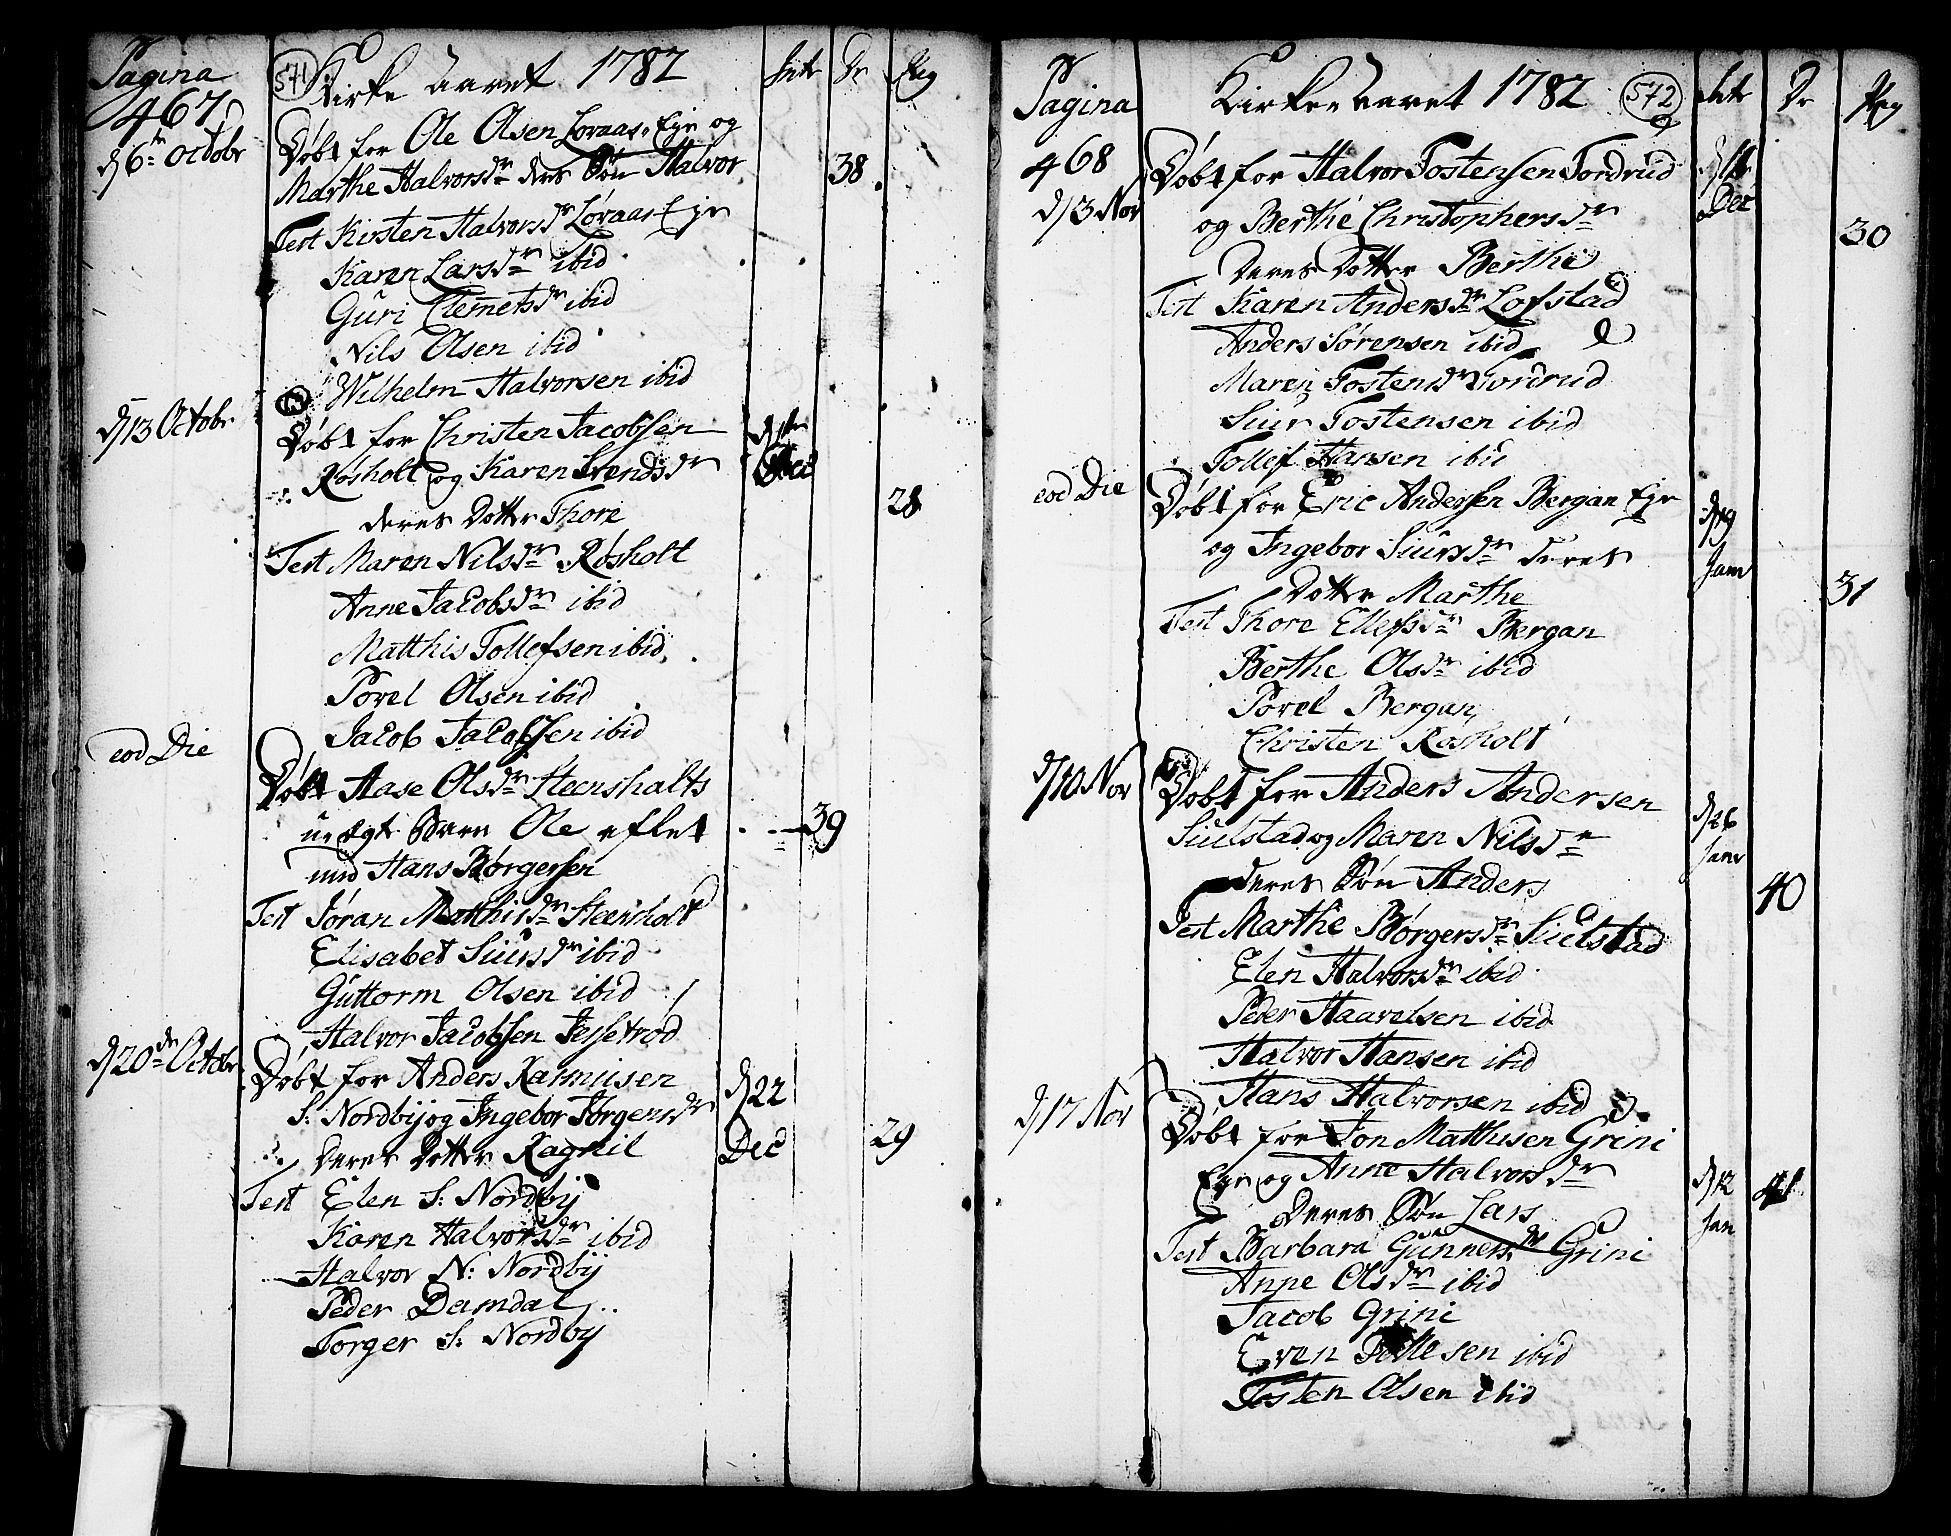 Pagina
467
571
Kirke Aaret 1782
Intr
Dr
Pig
d 6te Octobr
Døbt for Ole Olsen Løraas Eje og
Marthe Halvorsdr deres Søn Halvor
38
Test Kirsten Halvorsdr Løraas Eje
Karen Larsdr ibid
Guri Clemetsdr ibid
Nils Olsen ibid
Wilhelm Halvorsen ibid
d 13 Octobr
Døbt for Christen Jacobsen
Røsholt og Karen Svendsdr
deres Dotter Thore
d 1te
Dec
28
Test Maren Nilsdr Røsholt
Anne Jacobsdr ibid
Matthis Tollefsen ibid
Povel Olsen ibid
Jacob Jacobsen ibid
eod Die
Døbt Aase Olsdr Steensholts
uægte Barn Ole aflet
med Hans Børgersen
39
Test Jøran Matthisdr Steensholt
Elisabet Siursdr ibid
Guttorm Olsen ibid
Halvor Jacobsen Jessetrød
d 20de Octobr
Døbt for Anders Rasmusen
S: Nordby og Ingebor Jørgensdr
Deres Dotter Ragnil
d 22
Dec
29
Test Elen S: Nordby
Karen Halvorsdr ibid
Halvor N: Nordby
Peder Damdal
Torger S: Nordby
Pagina
468
Kirke Aaret 1782
572
Intr
Dr
Pig
d 3 Nov
Døbt for Halvor Tostensen Tordrud
og Berthe Christophersdr
Deres Dotter Berthe
d 1te
Dec
30
Test Karen Andersdr Lofstad
Anders Sørensen ibid
Maren Tostensdr Tordrud
Siur Tostensen ibid
Tollef Hansen ibid
eod Die
Døbt for Eric Andersen Bergan Eje
og Ingebor Siursdr deres
Dotter Marthe
d 19
Janv
31
Test Thore Ellefsdr Bergan
Berthe Olsdr ibid
Povel Bergan
Christen Røsholt
d 10 Nov
Døbt for Anders Andersen
Siulstad og Maren Nilsdr
deres Søn Anders
d 26
Janv
40
Test Marthe Børgersdr Siulstad
Elen Halvorsdr ibid
Peder Haavelsen ibid
Halvor Hansen ibid
Hans Halvorsen ibid
d 17 Nov
Døbt for Jon Mathisen Grini
Eje og Anne Halvorsdr
Deres Søn Lars
d 12
Jan
41
Test Barbara Gunnersdr Grini
Anne Olsdr ibid
Jacob Grini
Even ibid
Tosten Olsen ibid